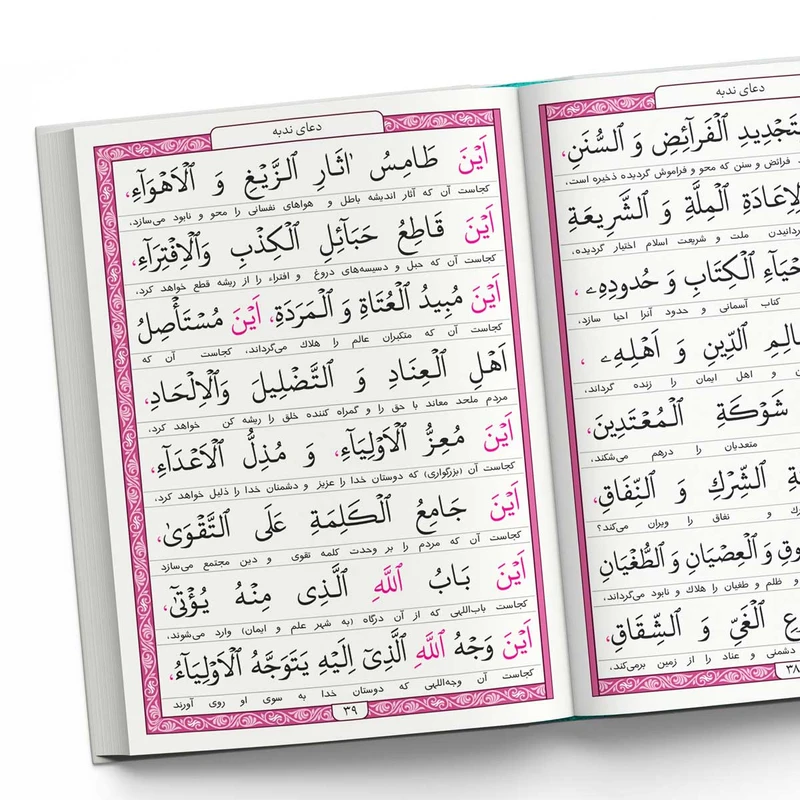 دعای ندبه
تَجْدِيدِ الْفَرَآئِضِ وَ السُّنَنِ،
فرائض و سنن که محو و فراموش گردیده ذخیره است،
الْمِلَّةِ وَ الشَّرِيعَةِ
ملت و شریعت اسلام اختیار گردیده،
الْكِتَابِ وَ حُدُودِهِ،
کتاب آسمانی و حدود آنرا احیا سازد،
الدِّينِ وَ اَهْلِهِ،
و اهل ایمان را زنده گرداند،
شَوْكَةِ الْمُعْتَدِينَ،
متعدیان را درهم می‌شکند،
الشِّرْكِ وَ النِّفَاقِ،
و نفاق را ویران می‌کند؟
وَ الْعِصْيَانِ وَ الطُّغْيَانِ
و ظلم و طغیان را هلاك و نابود می‌گرداند،
الْغَيِّ وَ الشِّقَاقِ،
دشمنی و عناد را از زمین برمی‌کند،
۳۸
دعای ندبه
اَيْنَ طَامِسُ اٰثَارِ الزَّيْغِ وَ الْاَهْوَآءِ،
کجاست آن که آثار اندیشه باطل و هواهای نفسانی را محو و نابود می‌سازد.
اَيْنَ قَاطِعُ حَبَآئِلِ الْكِذْبِ وَالْاِفْتِرَآءِ،
کجاست آن که حبل و دسیسه‌های دروغ و افتراء را از ریشه قطع خواهد کرد.
اَيْنَ مُبِيدُ الْعُتَاةِ وَ الْمَرَدَةِ، اَيْنَ مُسْتَأْصِلُ
کجاست آن که متکبران عالم را هلاك می‌گرداند، کجاست آن که
اَهْلِ الْعِنَادِ وَ التَّضْلِيلَ وَالْاِلْحَادِ،
مردم ملحد معاند با حق را و گمراه کننده خلق را ریشه کن خواهد کرد.
اَيْنَ مُعِزُّ الْاَوْلِيَآءِ، وَ مُذِلُّ الْاَعْدَآءِ،
کجاست آن (بزرگواری) که دوستان خدا را عزیز و دشمنان خدا را ذلیل خواهد کرد.
اَيْنَ جَامِعُ الْكَلِمَةِ عَلَى التَّقْوَىٰ،
کجاست آن که مردم را بر وحدت کلمه تقوی و دین مجتمع می‌سازد
اَيْنَ بَابُ اللَّهِ الَّذِى مِنْهُ يُؤْتىٰ،
کجاست باب‌اللهی که از آن درگاه (به شهر علم و ایمان) وارد می‌شوند.
اَيْنَ وَجْهُ اللَّهِ الَّذِىٓ اِلَيْهِ يَتَوَجَّهُ الْاَوْلِيَآءُ،
کجاست آن وجه‌اللهی که دوستان خدا به سوی او روی آورند
۳۹